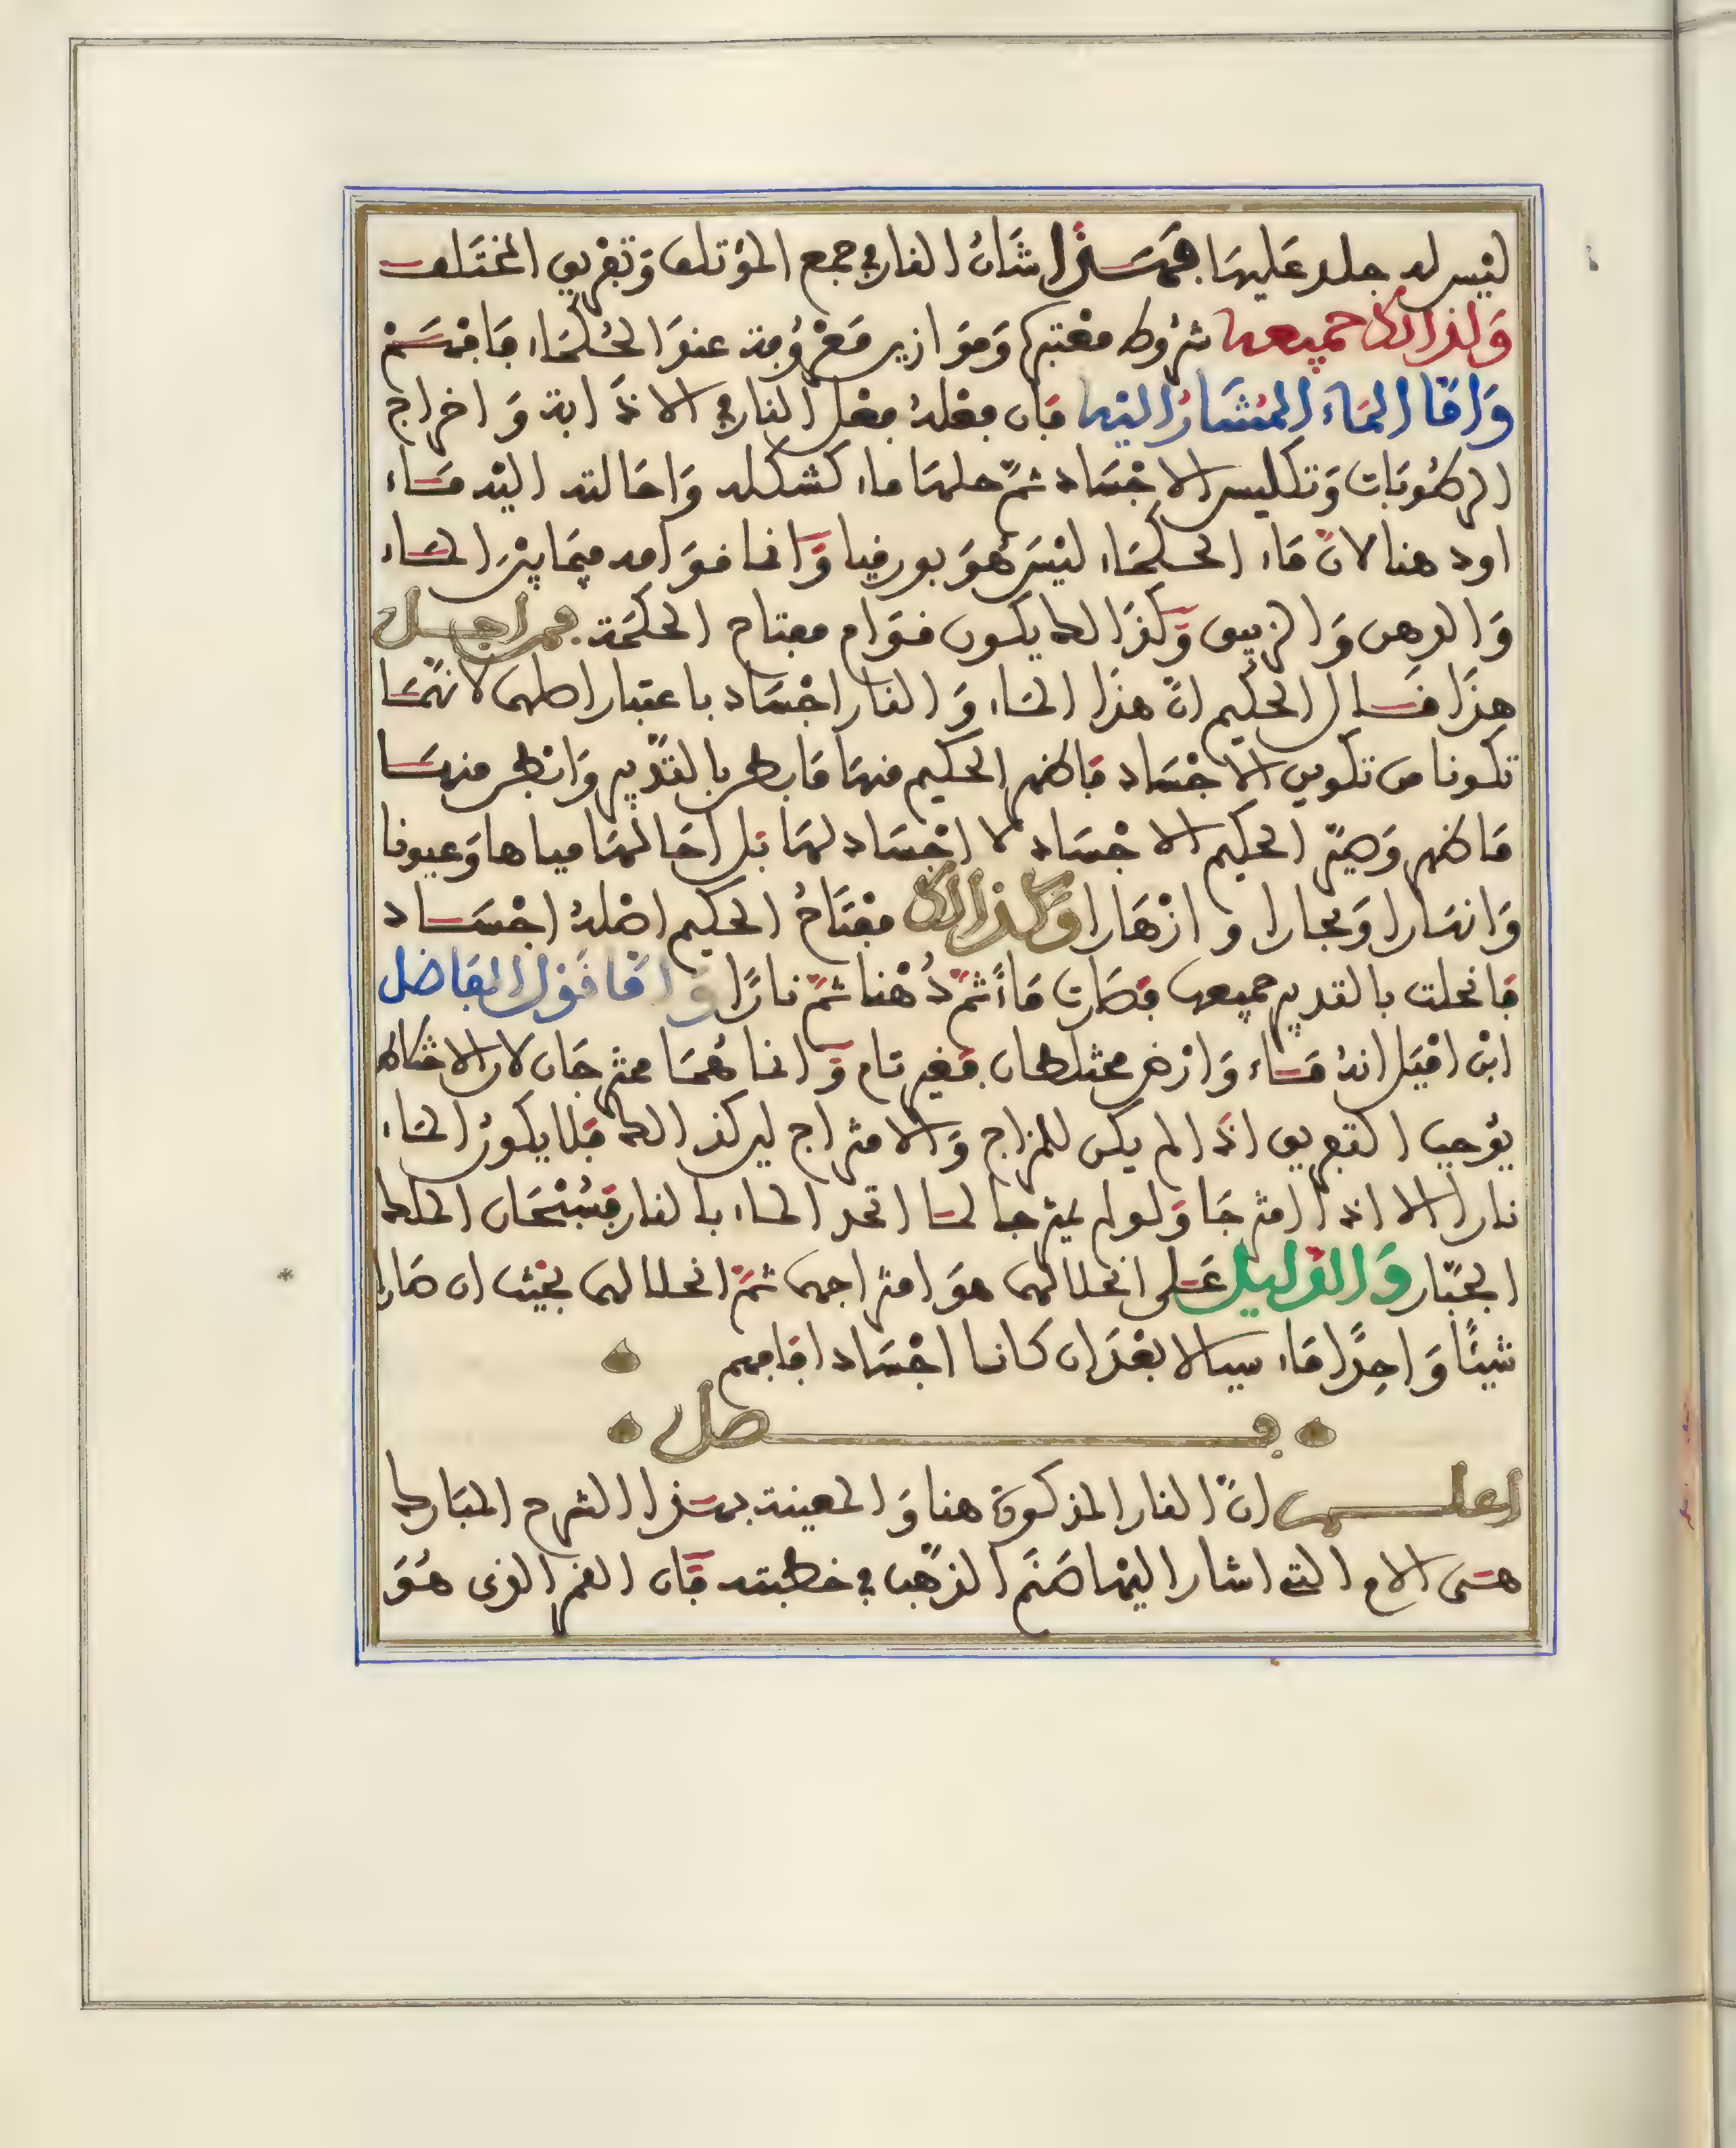 ليس له جلد عليها فهذا شان النار في جمع المؤتلف وتفريق المختلف
ولذالك جميعه شروط معتبرة وموازين معروفة عند الحكماء فافهم
واما الماء المشار اليه فان فعله فعل النار في الاذابة واخراج
الرطوبات وتكليس الاجساد ثم حلها ماء كشكله واحالته اليه ماء
او دهنا لان ماء الحكماء ليس هو بورقيا وانما قوامه فيما بين الماء
والدهن والزيبق وكذالك يكون قوام مفتاح الحكمة فمن اجل
هذا قال الحكيم ان هذا الماء والنار اجساد باعتبار اصلهما لانهما
تكونا من تكوين الاجساد فاظهر الحكيم منها ما بطن بالتدبير وابطن منها
ما ظهر وصير الحكيم الاجساد لا اجساد لها بل احالها مياها وعيونا
وانهارا وبحارا وازهارا وكذالك مفتاح الحكيم اصله اجساد
فانحلت بالتدبير جميعه فصارت ماء ثم دهنا ثم نارا واما قول الفاضل
ابن اميل انه ماء وارض مختلطان فغير تام وانما هما ممتزجان لان الاختلاط
يوجب التفريق اذا لم يكن للمزاج والامتزاج ليس كذالك فلا يكون الماء
نارا الا اذا امتزجا ولو لم يمتزجا لما اتحد الماء بالنار فسبحان الملك
الجبار والدليل على انحلالهما هو امتزاجهما ثم انحلالهما بحيث ان صارا
شيئا واحدا ماء سيالا بعد ان كانا اجسادا فافهم
فصل
اعلم ان النار المذكورة هنا والمعينة بهذا الشرح المبارك
هي الام التي اشار اليها صنم الذهب في خطبته فان القمر الذي هو